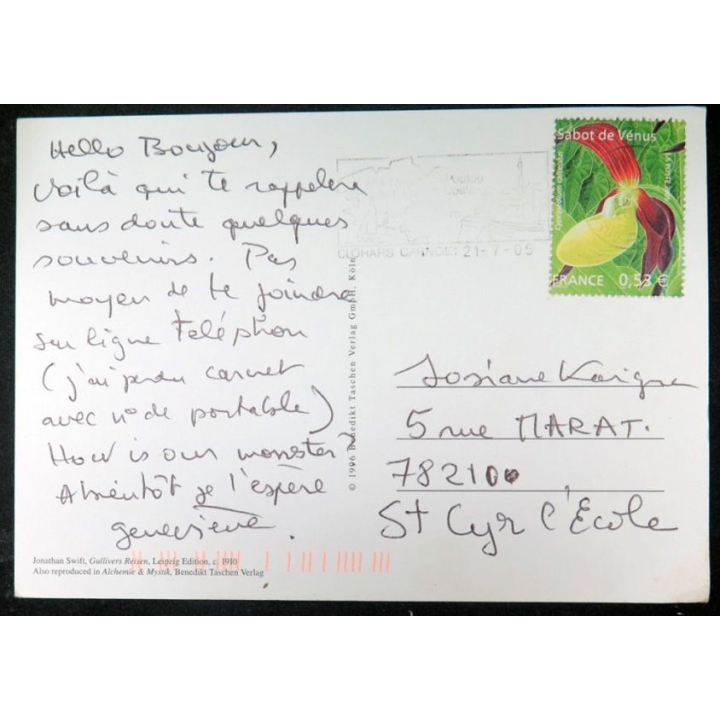 Hello Boujour,
Voilà qui te rappelera
sans doute quelques
souvenirs. Pas
moyen de te joindre
sur ligne téléphon
(j'ai perdu carnet
avec n° de portable)
How is our monster?
Abientôt je l'espère
geneviève.
Jonathan Swift, Gullivers Reisen, Leipzig Edition, c. 1910
Also reproduced in Alchemie & Mystik, Benedikt Taschen Verlag
© 1996 Benedikt Taschen Verlag GmbH, Köln
CLOHARS CARNOET 21-7-05
Sabot de Vénus
FRANCE 0,53 €
Josiane
5 rue MARAT.
78210
St Cyr l'École